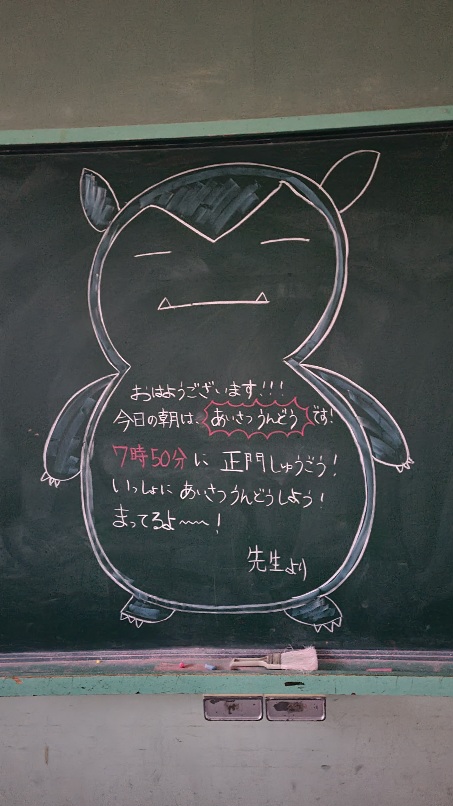 おはようございます!!!
今日の朝は、あいさつうんどうです!
7時50分に正門しゅうごう!
いっしょにあいさつうんどうしよう!
まってるよ〜〜!
先生より